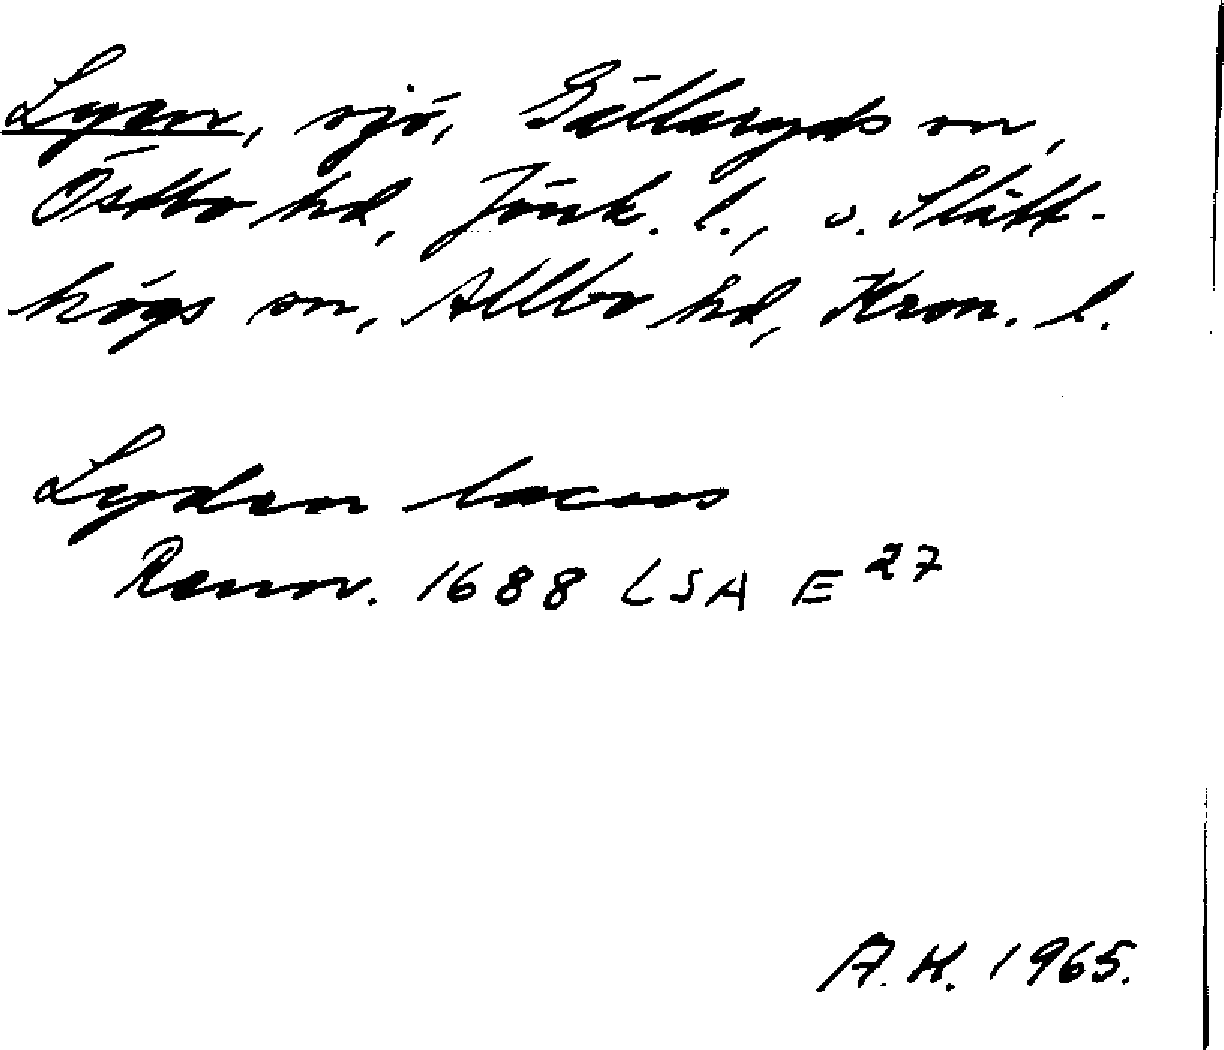 Lyen, sjö, Gällaryds sn,
Östbo hd, Jönk. l., o. Slätt-
högs sn, Allbo hd, Kron. l.
Lyden lacus
Renov. 1688 LSA E 27
A.H. 1965.